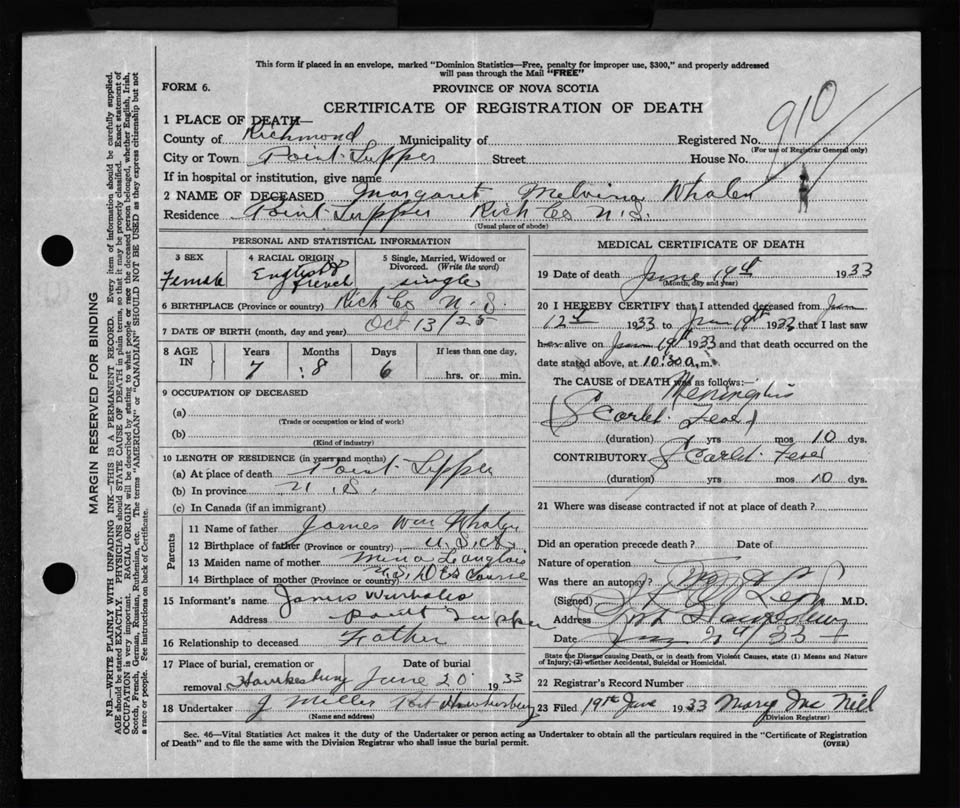 This form if placed in an envelope, marked "Dominion Statistics—Free, penalty for improper use, $300," and properly addressed
will pass through the Mail "FREE"
FORM 6.
PROVINCE OF NOVA SCOTIA
CERTIFICATE OF REGISTRATION OF DEATH
910
1 PLACE OF DEATH—
County of Richmond Municipality of Registered No.
(For use of Registrar General only)
City or Town Point Tupper Street House No.
If in hospital or institution, give name
2 NAME OF DECEASED Margaret Melvina Whalen
Residence Point Tupper Rich Co N.S.
(Usual place of abode)
PERSONAL AND STATISTICAL INFORMATION
3 SEX
Female
4 RACIAL ORIGIN
English & French
5 Single, Married, Widowed or
Divorced. (Write the word)
single
6 BIRTHPLACE (Province or country) Rich Co N.S.
7 DATE OF BIRTH (month, day and year) Oct 13/25
8 AGE IN
Years Months Days If less than one day,
7 8 6 hrs. or min.
9 OCCUPATION OF DECEASED
(a)
(Trade or occupation or kind of work)
(b)
(Kind of industry)
10 LENGTH OF RESIDENCE (in years and months)
(a) At place of death Point Tupper
(b) In province N.S.
(c) In Canada (if an immigrant)
Parents
11 Name of father James Wm Whalen
12 Birthplace of father (Province or country) U.S.A.
13 Maiden name of mother Mina Langlois
14 Birthplace of mother (Province or country)
15 Informant's name James Whalen
Address Point Tupper
16 Relationship to deceased Father
17 Place of burial, cremation or Date of burial
removal Hawkesbury June 20 1933
18 Undertaker J Miller Port Hawkesbury
(Name and address)
MEDICAL CERTIFICATE OF DEATH
19 Date of death June 19th 1933
(Month, day and year)
20 I HEREBY CERTIFY that I attended deceased from June
12th 1933 to June 19th 1933 that I last saw
her alive on June 19th 1933 and that death occurred on the
date stated above, at 10:30 a.m.
The CAUSE OF DEATH was as follows:—
Meningitis
(Scarlet Fever)
(duration) yrs mos 10 dys.
CONTRIBUTORY Scarlet Fever
(duration) yrs mos 10 dys.
21 Where was disease contracted if not at place of death?
Did an operation precede death? Date of
Nature of operation
Was there an autopsy?
(Signed) M.D.
Address Port Hawkesbury
Date
State the Disease causing Death, or in death from Violent Causes, state (1) Means and Nature
of Injury, (2) whether Accidental, Suicidal or Homicidal.
22 Registrar's Record Number
23 Filed 19th June 1933 Mary
(Division Registrar)
Sec. 46—Vital Statistics Act makes it the duty of the Undertaker or person acting as Undertaker to obtain all the particulars required in the "Certificate of Registration
of Death" and to file the same with the Division Registrar who shall issue the burial permit.
(OVER)
MARGIN RESERVED FOR BINDING
N.B.—WRITE PLAINLY WITH UNFADING INK—THIS IS A PERMANENT RECORD. Every item of information should be carefully supplied.
AGE should be stated EXACTLY. PHYSICIANS should STATE CAUSE OF DEATH in plain terms, so that it may be properly classified. Exact statement of
OCCUPATION is very important. RACIAL ORIGIN will be described by stating to what people or race the deceased person belonged, whether English, Irish,
Scotch, French, German, Russian, Ruthenian, etc. The terms "AMERICAN" or "CANADIAN" SHOULD NOT BE USED as they express citizenship but not
a race or people. See instructions on back of Certificate.